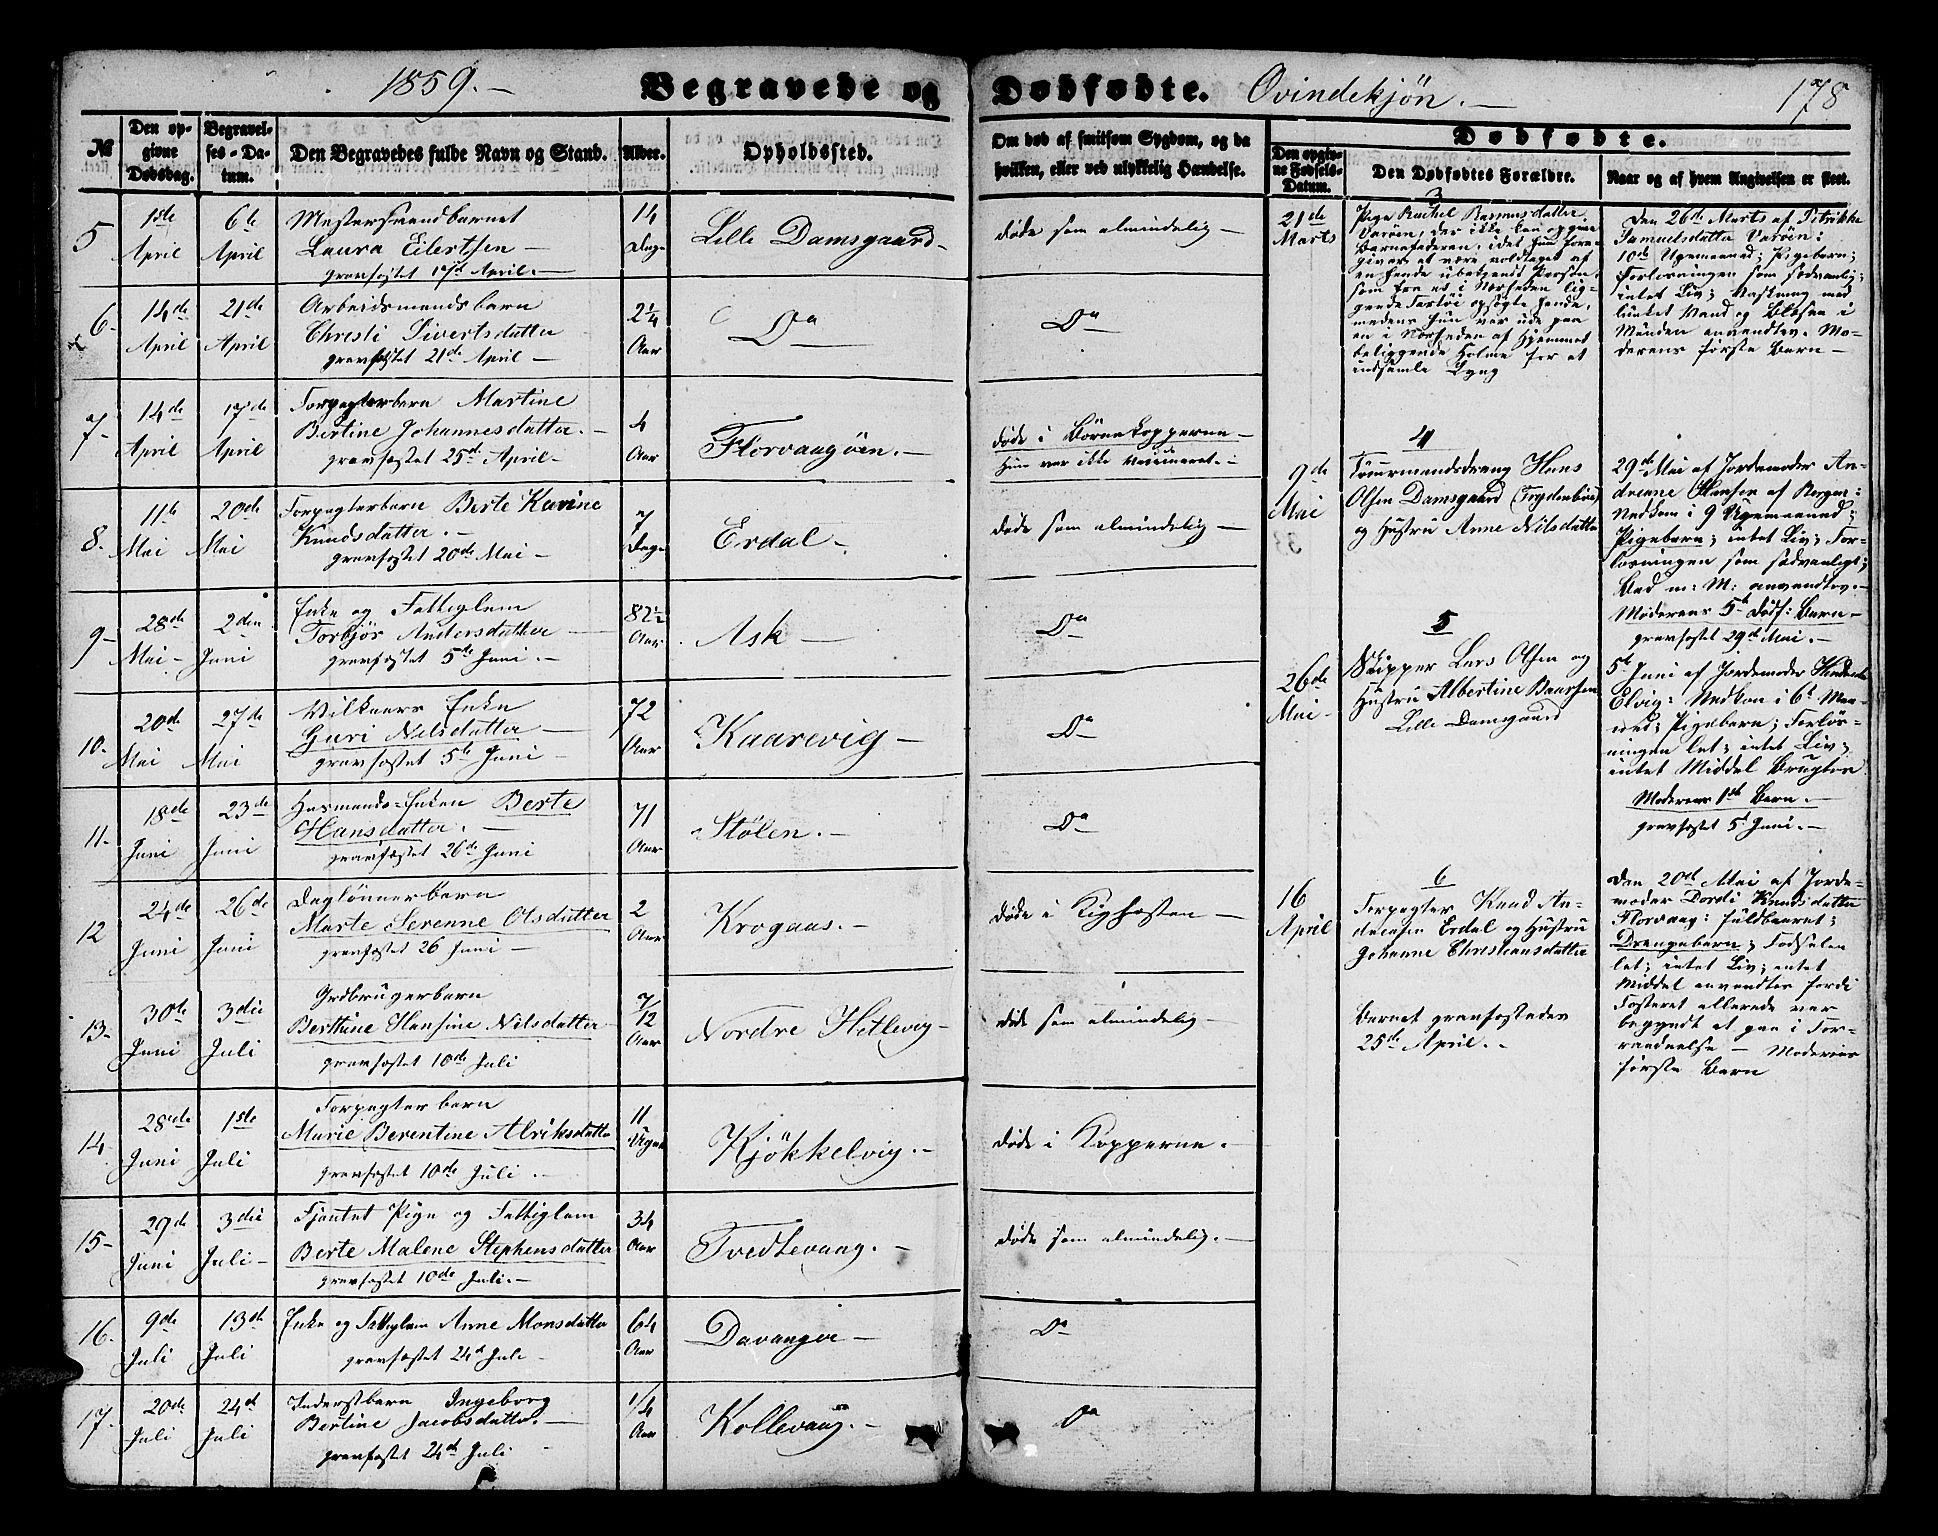 1859.
Begravede og
Dødfødte.
Qvindekjøn.
178
№
Den opgivne Dødsdag.
Begravelses-Datum.
Den Begravedes fulde Navn og Stand.
Alder.
Opholdssted.
Om død af smitsom Sygdom, og da
hvilken, eller ved ulykkelig Hændelse.
Dødfødte.
Den opgivne Fødsels-Datum.
Den Dødfødtes Forældre.
Naar og af hvem Angivelsen er skeet.
5 1ste April 6te April
Laura Eilertsen
gravfæstet 17d April.
14 Dage
Lille Damsgaard
døde som almindelig
6. 14de April 21de April
Arbeidsmandsbarn
Christi Sivertsdatter
gravfæstet 21de April
2¼ Aar
Do
Do
7. 14de April 17de April
Forpagterbarn Martine
Bertine Johannesdatter.
gravfæstet 25d April
4 Aar
Florvaagøen.
døde i Børnekopperne
Hun var ikke vaccineret.
8. 11te Mai 20de Mai
Forpagterbarn Berte Karine
Knudsdatter.
gravfæstet 20de Mai
7 Dage
Erdal
døde som almindelig
9 28de Mai 2den Juni
Enke og Fattiglem
Torbjør Andersdatter
gravfæstet 5te Juni.
82½ Aar
Ask
Do
10. 20de Mai 27de Mai
Vilkaars Enke
Guri Nilsdatter
gravfæstet 5te Juni
72 Aar
Kaarevig
Do
11. 18de Juni 23de Juni
Husmands-Enken Berte
Hansdatter.
gravfæstet 26de Juni
71 Aar
Stølen.
Do
12 24de Juni 26de Juni
Daglønnerbarn
Marte Serenne Olsdatter
gravfæstet 26 Juni
2 Aar
Krogaas.
døde i Kighosten
13. 30te Juni 3die Juli
Grdbrugerbarn
Berthine Hansine Nilsdatter
gravfæstet 10de Juli
7/12 Aar
Nordre Hetlevig
døde som almindelig
14 28de Juni 1ste Juli
Forpagterbarn
Marie Berentine Alriksdatter
gravfæstet 10de Juli.
11 Uger
Kjøkkelvig.
døde i Kopperne.
15 29de Juni 3die Juli
Fjantet Pige og Fattiglem
Berte Malene Stephensdatter
gravfæstet 10de Juli.
34 Aar
Tvedtevaag.
døde som almindelig.
16. 9de Juli 13de Juli
Enke og Fattiglem Anne Monsdatter
gravfæstet 24d Juli
64 Aar
Davanger
Do
17. 20de Juli 24d Juli
Inderstbarn Ingeborg
Bertine Jacobsdatter.
gravfæstet 24de Juli
1/4 Aar
Kollevaag.
Do
3
21de Marts
Pige Rachel Rasmusdatter
Varøen, der ikke kan opgive
Barnefaderen, idet hun fore-
giver at være voldtaget af
en hende ubekjendt Person,
som fra et i Nærheden lig-
gende Fartøi opsøgte hende,
medens hun var ude paa
en i Nærheden af Hjemmet
beliggende Holme for at
indsamle Lyng
Den 26de Marts af Petrikke
Samuelsdatter Varøen:
10de Ugemaaned; Pigebarn;
Forløsningen som sædvanlig;
intet Liv; Vaskning med
lunket Vand og Blæsen i
Munden anvendtes. Mo-
derens første Barn
4
9de Mai
Tømmermandsdreng Hans
Olsen Damsgaard (Frydenbøe)
og Hustru Anne Nilsdatter
29de Mai af Jordemoder An-
dreane Hansen af Bergen:
Nedkom i 9 Ugemaaned;
Pigebarn; intet Liv; For-
løsningen som sædvanligt;
Bad m: M: anvendtes.
Moderens 5te dødf: Barn
gravfæstet 29de Mai.
5
26de Mai
Skipper Lars Olsen og
Hustru Albertine Baarsen
Lille Damsgaard
5te Juni af Jordemoder
Elvig: Nedkom i 6te Maa-
ned; Pigebarn; Forløs-
ningen let; intet Liv;
intet Middel brugtes.
Moderens 1ste Barn.
gravfæstet 5d Juni.
6
16 April
Forpagter Knud An-
dersen Erdal og Hustru
Johanne Christiansdatter
Barnet gravfæstedes
25de April.
Den 20de Mai af Jorde-
moder Dordi Knudsdatter
Florvaag: fuldbaaret;
Drengebarn; Fødselen
let; intet Liv; intet
Middel anvendtes fordi
Fosteret allerede var
begyndt at gaa i For-
raadnelse — Moderens
første Barn